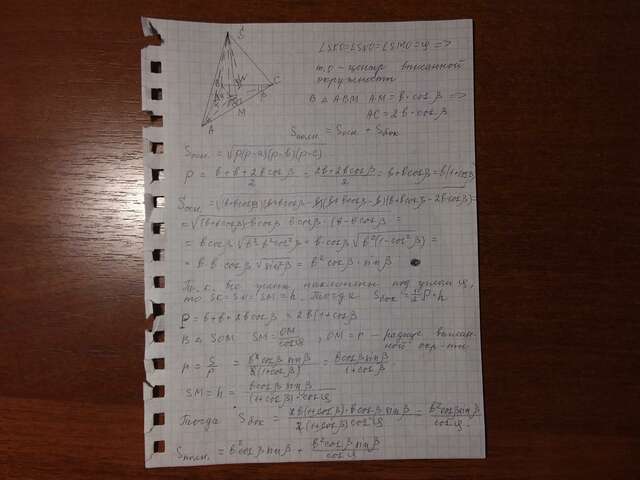 S
C
A
M
β
∠SKO=∠SNO=∠SMO=φ =>
т.О - центр вписанной
окружности
В △ ABM AM = b·cosβ =>
AC = 2b·cosβ
Sполн. = Sосн. + Sбок
Sосн. = √p(p-a)(p-b)(p-c)
P = (b+b+2b cosβ)/2 = (2b+2b cosβ)/2 = b+b cosβ = b(1+cosβ)
Sосн. = √(b+b cosβ)(b+b cosβ-b)(b+b cosβ-b)(b+b cosβ-2b cosβ) =
= √(b+b cosβ)·b cosβ·b cosβ·(b-b cosβ) =
= b cosβ √b²-b²cos²β = b·cosβ √b²(1-cos²β) =
= b·b·cosβ √sin²β = b² cosβ·sinβ
Т.к. все наклонены под углом φ,
то SK=SN=SM=h. Тогда Sбок = ½P·h
P = b+b+2b cosβ = 2b(1+cosβ
В △ SOM SM = OM/cosφ, OM = r - радиус вписан-
ной окр-ти
r = S/p = b² cosβ sinβ/b(1+cosβ) = b cosβ sinβ/1+cosβ
SM = h = b cosβ sinβ/(1+cosβ)·cosφ
Тогда Sбок = 2b(1+cosβ)·b cosβ sinβ/2(1+cosβ) cosφ = b² cosβ sinβ/cosφ.
Sполн. = b² cosβ sinβ + b² cosβ sinβ/cosφ